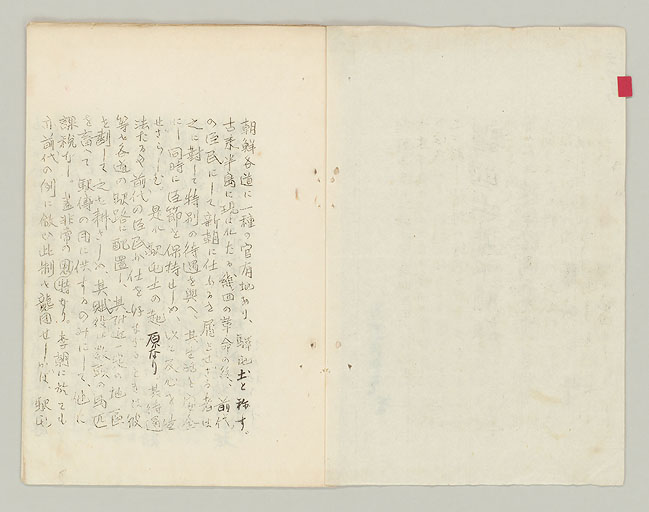 朝鮮各道に一種の官有地あり、驛屯土と称す。
古来半島に現はれたる幾回の革命の後、前代
の臣民にして新朝に仕ふるを屑とせざる者は
之に對して特別の待遇を與へ、其生活を
にし同時に臣節を保持せしめ、以て反心を
せざらしむ 是れ驛屯土の起原なり 其待遇
法たるや前代の臣民が仕を
等を各道の驛路に配置し、其附近一定の地區
を劃して之を耕さしめ、其賦役は の馬匹
を畜へて驛傳の用に供するのみにして、他に
課税なし。蓋非常の恩典なり。李朝に於ても
亦前代の例に倣ひ此制を襲用せしかば、驛屯